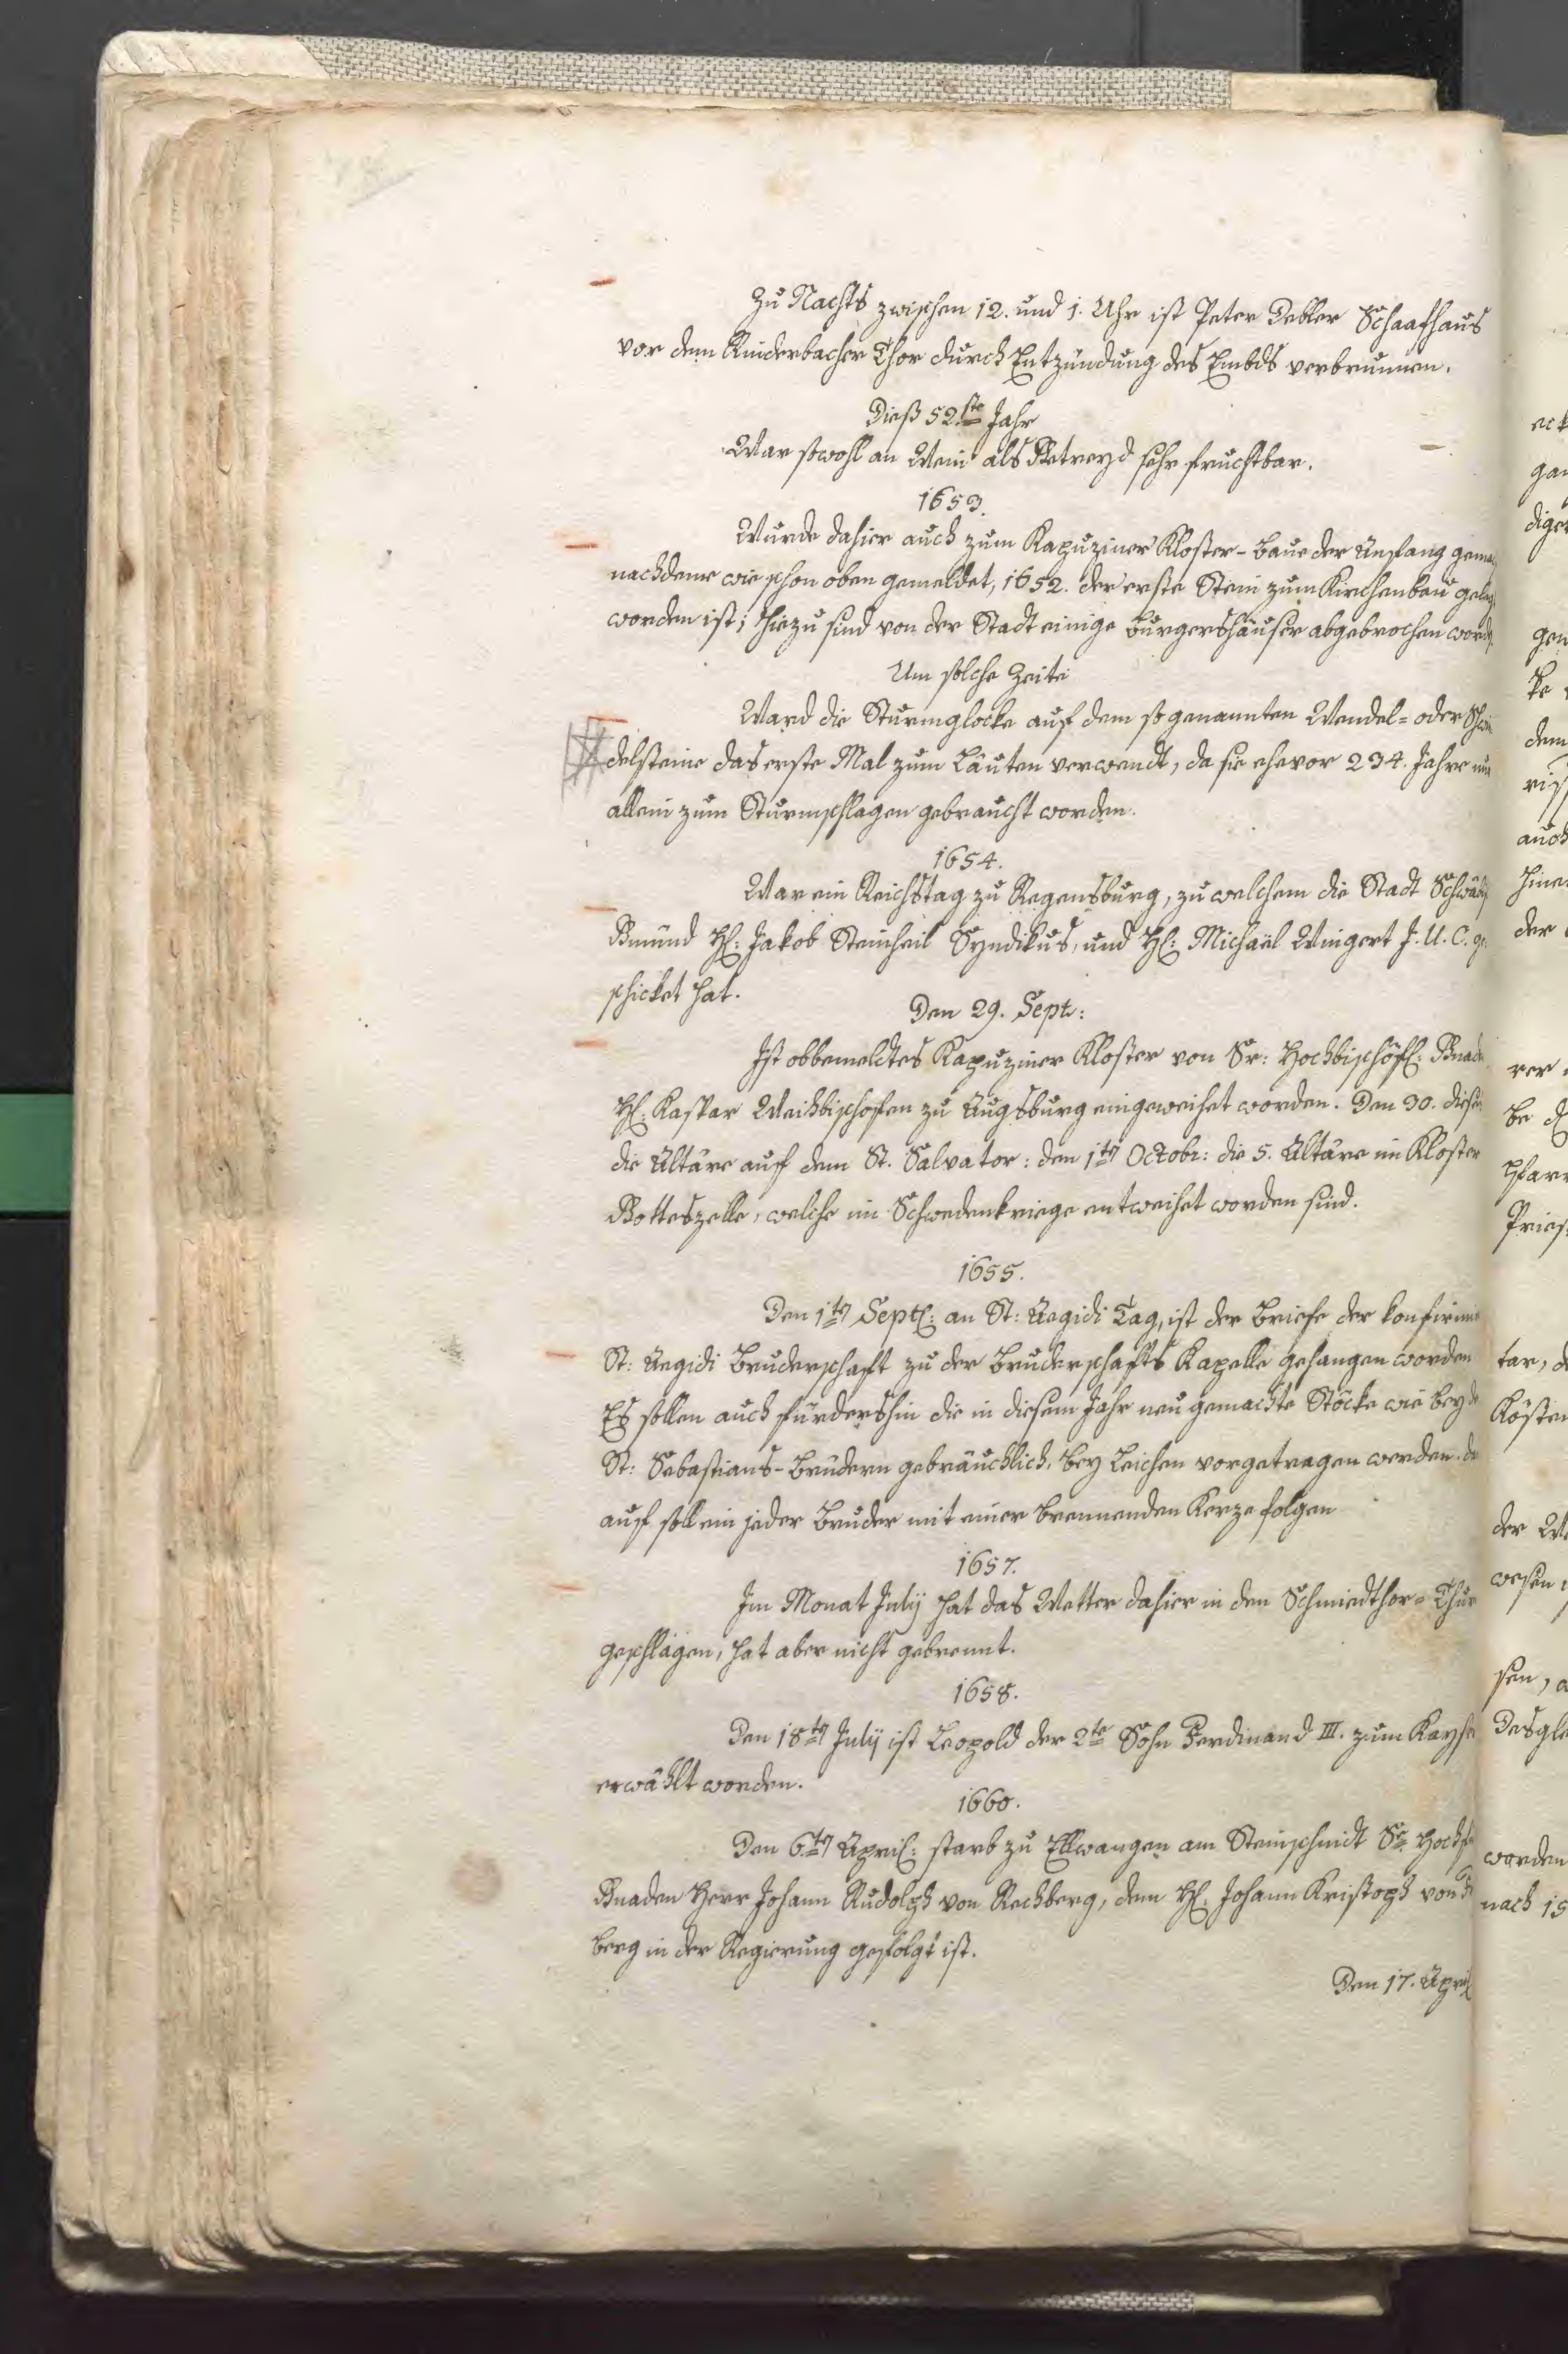 Zu Nachts zwischen 12. und 1. Uhr ist Peter Debler Schaafhaus
vor dem Rinderbacher Thor durch Entzündung des Embds verbrunnen.
Dieß 52ste Jahr
War sowohl an Wein als Getreyd sehr fruchtbar.
1653.
Wurde dahier auch zum Kapuziner Kloster-Baue der Anfang gema
nachdeme wie schon oben gemeldet, 1652. der erste Stein zum Kirchenbau geleg
worden ist; hiezu sind von der Stadt einige Burgershäuser abgebrochen word
Um solche Zeite
Ward die Sturmglocke auf dem so genannten Wendel= oder Schwin
delsteine das erste Mal zum Läuten verwendt, da sie ehevor 234. Jahre nur
allein zum Sturmschlagen gebraucht worden.
1654.
War ein Reichstag zu Regensburg, zu welchem die Stadt Schwäbisch
Gmünd H: Jakob Steinheil Syndikus, und H: Michaël Wingert J. U. C. ge
schicket hat.
Den 29. Sept:
Ist obbemeldtes Kapuziner Kloster von Sr: Hochbischöfl: Gnade
H: Kaspar Weihbischofen zu Augsburg eingeweihet worden. Den 30. dieses
die Altäre auf dem St. Salvator: den 1ten Octobr: die 5. Altäre im Kloster
Gotteszelle, welche im Schwedenkriege entweihet worden sind.
1655.
Den 1ten Sept: an St: Aegidi Tag, ist der Briefe der konfirmir
St: Aegidi Bruderschaft zu der Bruderschafts Kapelle gehangen worden
Es sollen auch fürdershin die in diesem Jahr neu gemachte Stöcke wie bey de
St: Sebastians-Brüdern gebräuchlich, bey Leichen vorgetragen werden. da
auf soll ein jeder Bruder mit einer brennenden Kerze folgen
1657.
Im Monat Julÿ hat das Wetter dahier in den Schmiedthor= Thur
geschlagen, hat aber nicht gebrennt.
1658.
Den 18ten Julÿ ist Leopold der 2te Sohn Ferdinand III. zum Kayser
erwählt worden.
1660.
Den 6ten April: starb zu Ellwangen am Steinschnidt Sr Hochf
Gnaden Herr Johann Rudolph von Rechberg, dem H: Johann Kristoph von
berg in der Regierung gefolgt ist.
Den 17. April